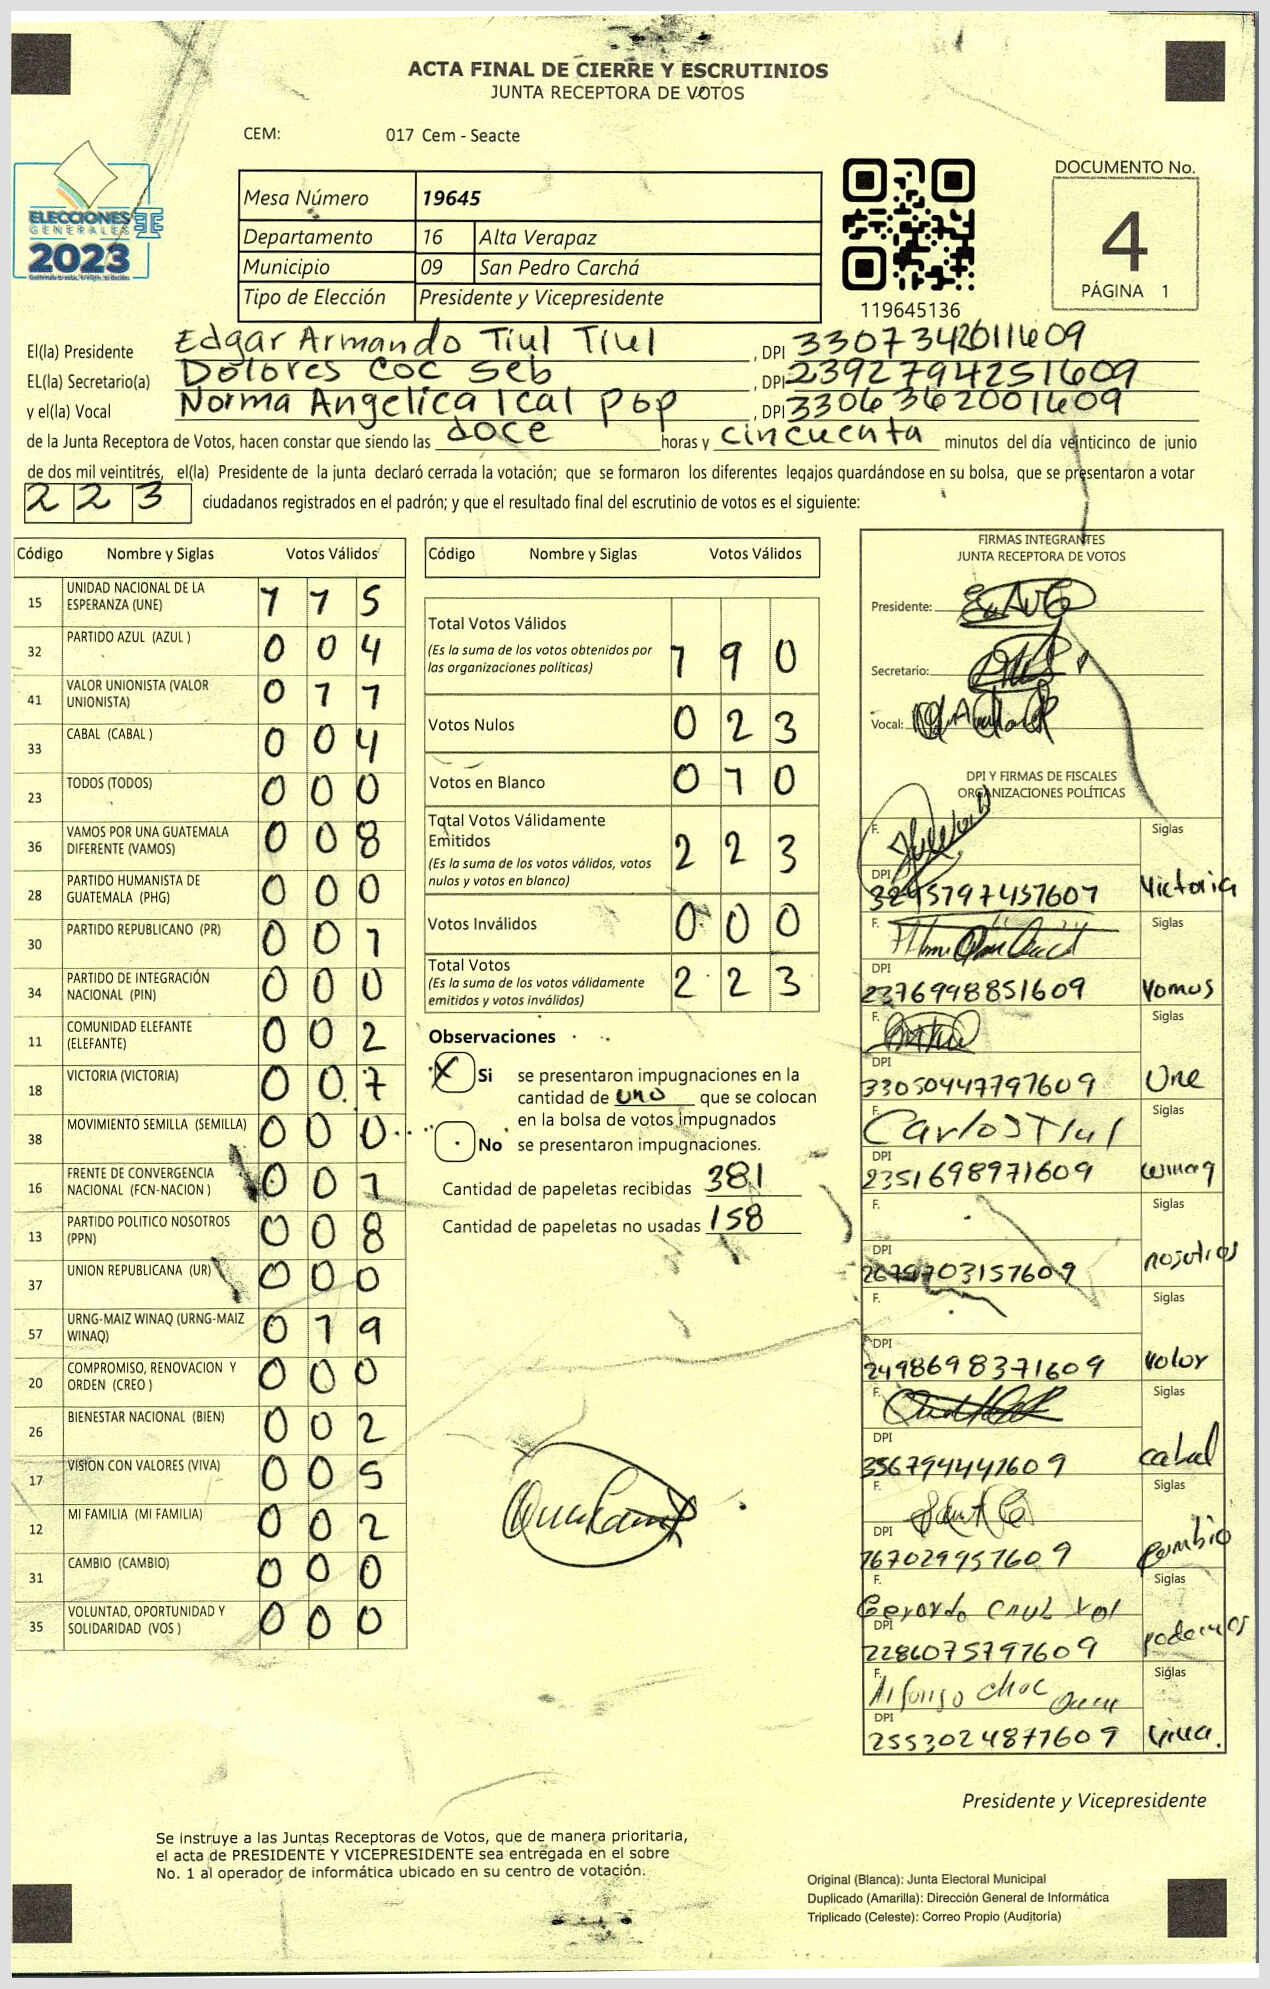 ACTA FINAL DE CIERRE Y ESCRUTINIOS
JUNTA RECEPTORA DE VOTOS
CEM: 017 Cem - Seacte
ELECCIONES
GENERALES
2023
Mesa Número 19645
Departamento 16 Alta Verapaz
Municipio 09 San Pedro Carchá
Tipo de Elección Presidente y Vicepresidente
119645136
DOCUMENTO No.
4
PÁGINA 1
El(la) Presidente Edgar Armando Tiul Tiul , DPI 3307342011609
EL(la) Secretario(a) Dolores Coc Seb , DPI 2392794251609
y el(la) Vocal Norma Angelica Ical Pop , DPI 3306362001609
de la Junta Receptora de Votos, hacen constar que siendo las doce horas y cincuenta minutos del día veinticinco de junio
de dos mil veintitrés, el(la) Presidente de la junta declaró cerrada la votación; que se formaron los diferentes legajos quardándose en su bolsa, que se presentaron a votar
223 ciudadanos registrados en el padrón; y que el resultado final del escrutinio de votos es el siguiente:
Código Nombre y Siglas Votos Válidos
15 UNIDAD NACIONAL DE LA ESPERANZA (UNE) 1 1 5
32 PARTIDO AZUL (AZUL ) 0 0 4
41 VALOR UNIONISTA (VALOR UNIONISTA) 0 1 1
33 CABAL (CABAL ) 0 0 4
23 TODOS (TODOS) 0 0 0
36 VAMOS POR UNA GUATEMALA DIFERENTE (VAMOS) 0 0 8
28 PARTIDO HUMANISTA DE GUATEMALA (PHG) 0 0 0
30 PARTIDO REPUBLICANO (PR) 0 0 1
34 PARTIDO DE INTEGRACIÓN NACIONAL (PIN) 0 0 0
11 COMUNIDAD ELEFANTE (ELEFANTE) 0 0 2
18 VICTORIA (VICTORIA) 0 0 7
38 MOVIMIENTO SEMILLA (SEMILLA) 0 0 0
16 FRENTE DE CONVERGENCIA NACIONAL (FCN-NACION ) 0 0 1
13 PARTIDO POLITICO NOSOTROS (PPN) 0 0 8
37 UNION REPUBLICANA (UR) 0 0 0
57 URNG-MAIZ WINAQ (URNG-MAIZ WINAQ) 0 1 9
20 COMPROMISO, RENOVACION Y ORDEN (CREO ) 0 0 0
26 BIENESTAR NACIONAL (BIEN) 0 0 2
17 VISION CON VALORES (VIVA) 0 0 5
12 MI FAMILIA (MI FAMILIA) 0 0 2
31 CAMBIO (CAMBIO) 0 0 0
35 VOLUNTAD, OPORTUNIDAD Y SOLIDARIDAD (VOS ) 0 0 0
Código Nombre y Siglas Votos Válidos
Total Votos Válidos 1 9 0
(Es la suma de los votos obtenidos por
las organizaciones políticas)
Votos Nulos 0 2 3
Votos en Blanco 0 1 0
Total Votos Válidamente
Emitidos 2 2 3
(Es la suma de los votos válidos, votos
nulos y votos en blanco)
Votos Inválidos 0 0 0
Total Votos 2 2 3
(Es la suma de los votos válidamente
emitidos y votos inválidos)
Observaciones
X Si se presentaron impugnaciones en la
cantidad de uno que se colocan
en la bolsa de votos impugnados
No se presentaron impugnaciones.
Cantidad de papeletas recibidas 381
Cantidad de papeletas no usadas 158
FIRMAS INTEGRANTES
JUNTA RECEPTORA DE VOTOS
Presidente:
Secretario:
Vocal:
DPI Y FIRMAS DE FISCALES
ORGANIZACIONES POLÍTICAS
F. Siglas
DPI
3245797457607 Victoria
F. Siglas
DPI
2376998851609 Vamos
F. Siglas
DPI
3305044797609 Une
F. Carlos Tiul Siglas
DPI
2351698971609 winaq
F. Siglas
DPI
2679703157609 nosotros
F. Siglas
DPI
2498698371609 valor
F. Siglas
DPI
356794441609 cabal
F. Siglas
DPI
1670299571609 cambio
F. Gerardo Siglas
DPI
2286075797609 podemos
F. Alfonso Choc Siglas
DPI
2553024871609 viva.
Presidente y Vicepresidente
Se instruye a las Juntas Receptoras de Votos, que de manera prioritaria,
el acta de PRESIDENTE Y VICEPRESIDENTE sea entregada en el sobre
No. 1 al operador de informática ubicado en su centro de votación.
Original (Blanca): Junta Electoral Municipal
Duplicado (Amarilla): Dirección General de Informática
Triplicado (Celeste): Correo Propio (Auditoría)